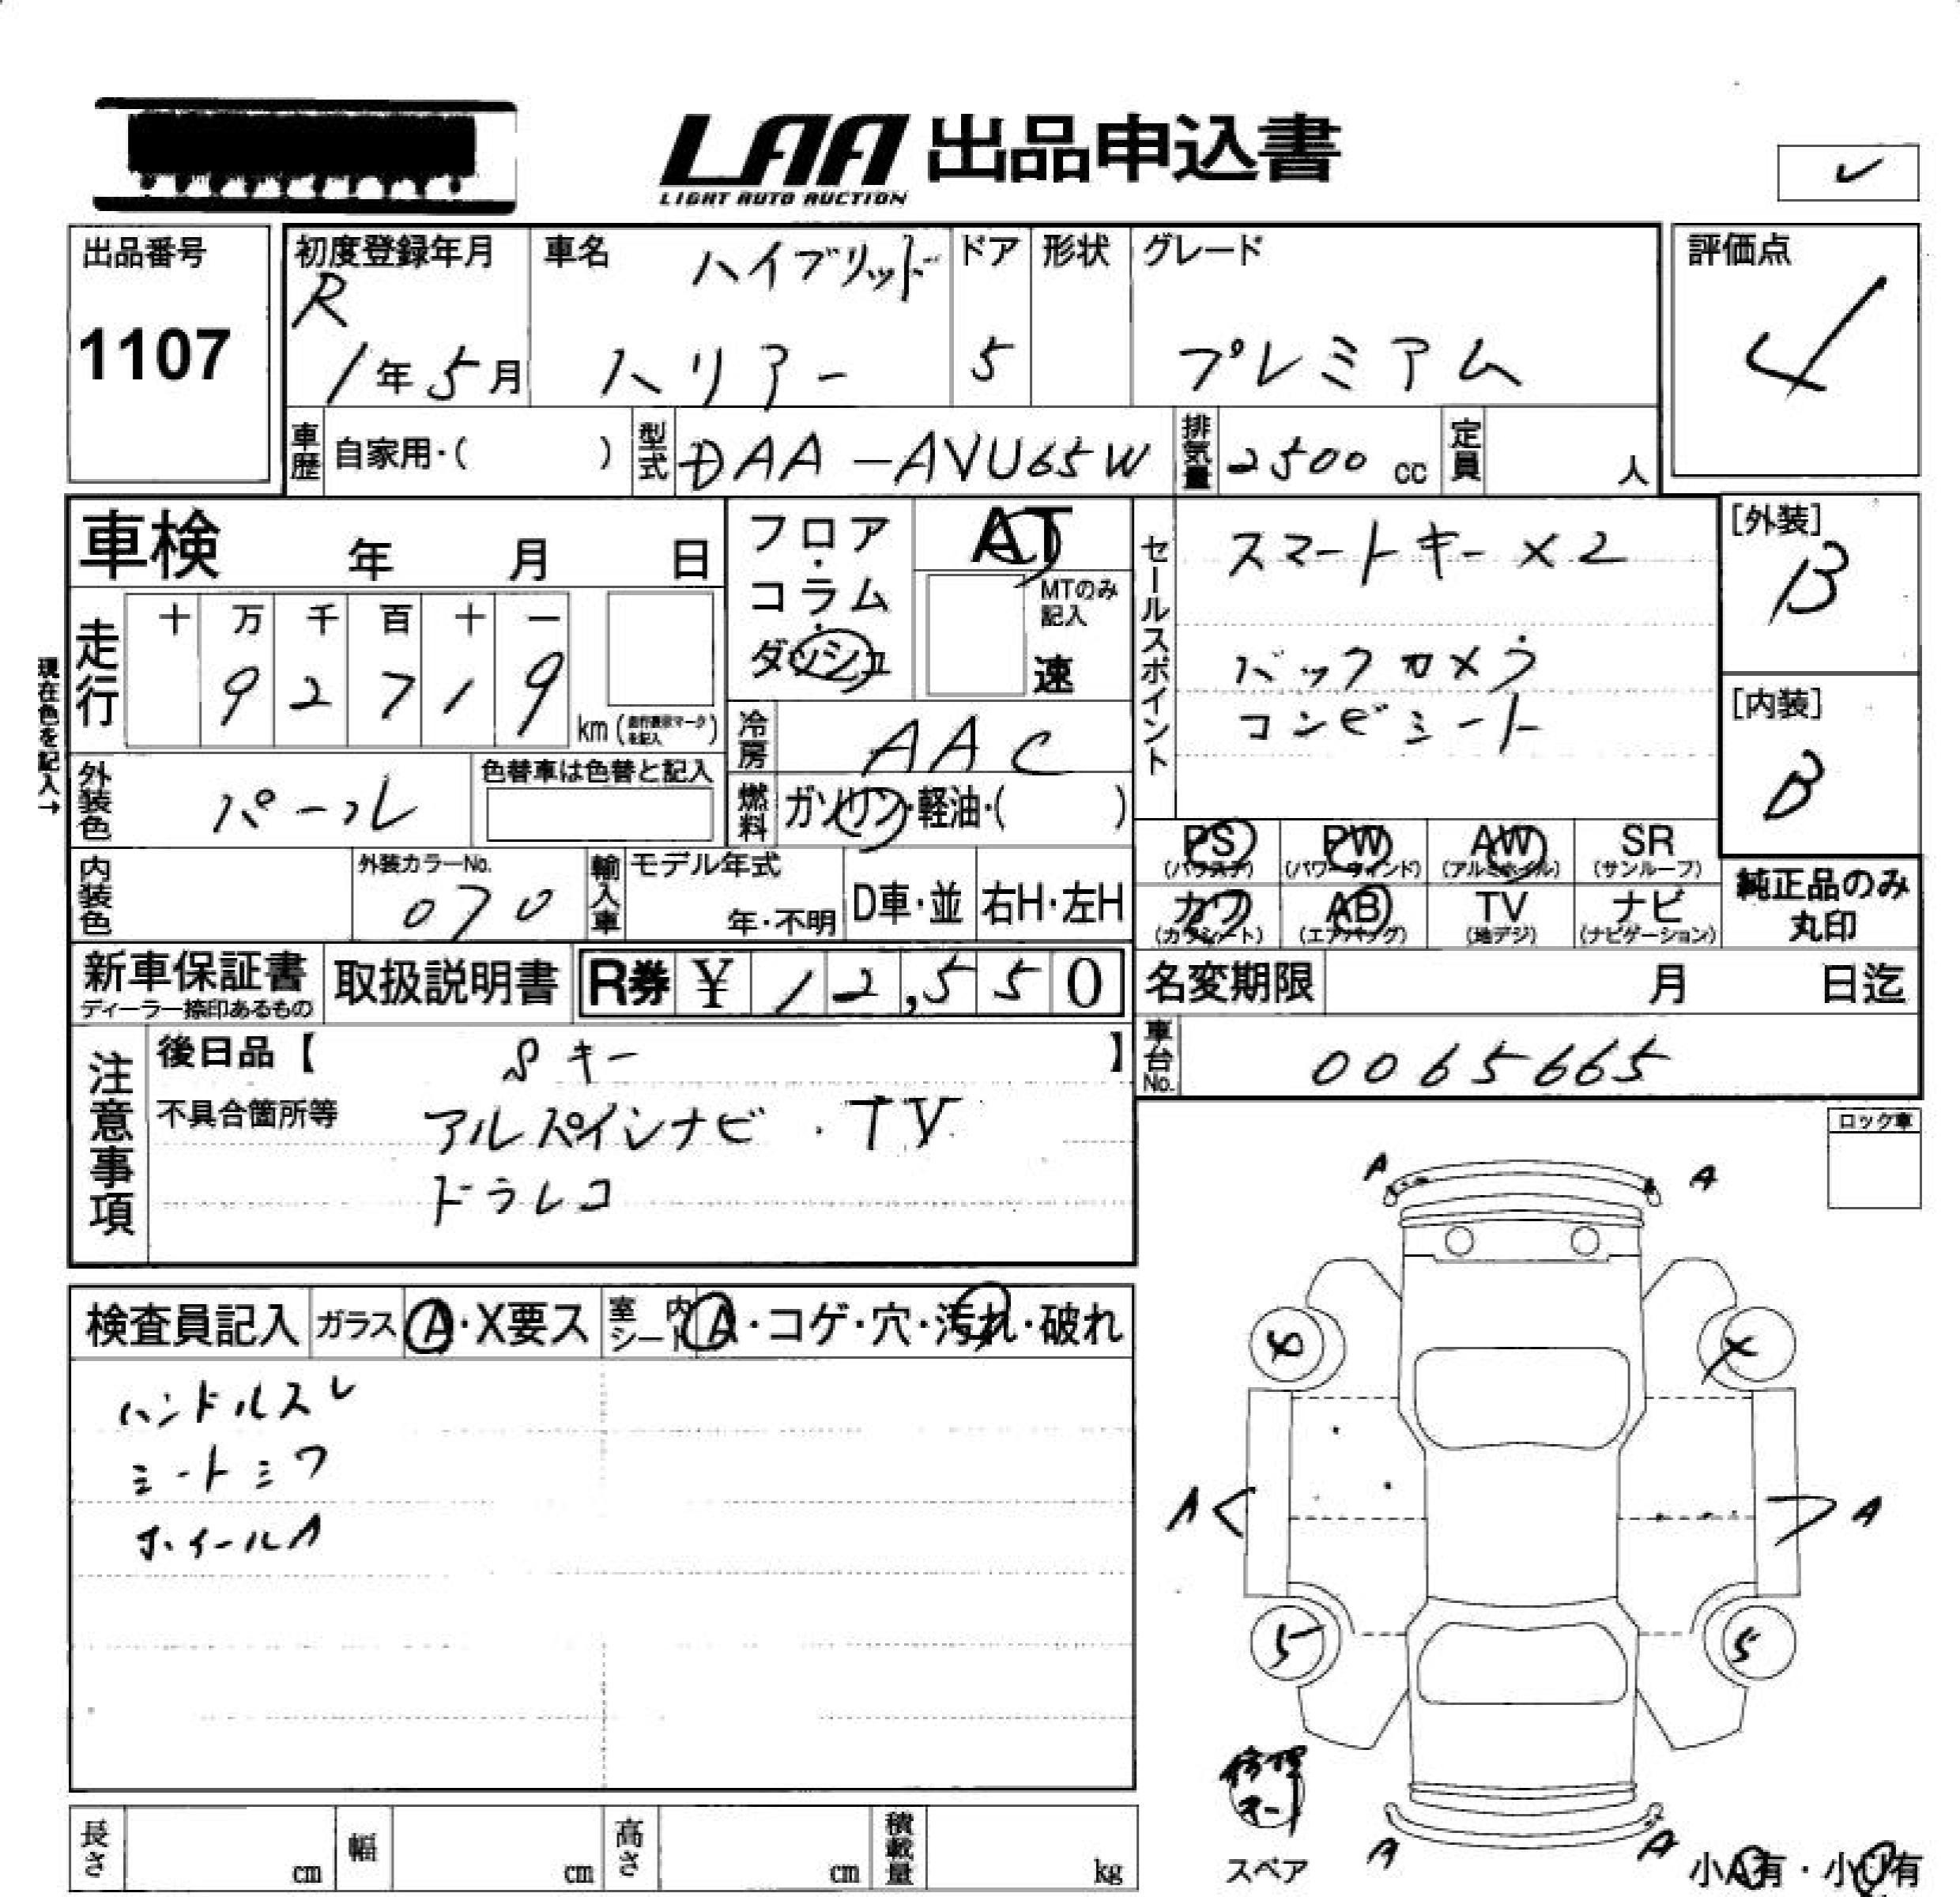 LAA 出品申込書
LIGHT AUTO AUCTION
出品番号
1107
初度登録年月
R
1年5月
車名
ハイブリッド
ハリアー
ドア
5
形状
グレード
プレミアム
評価点
4
車歴 自家用・( )
型式 DAA-AVU65W
排気量 2500 cc
定員 人
車検 年 月 日
走行
十 万 千 百 十 一
9 2 7 1 9
km (走行表示マークを記入)
現在色を記入→
外装色 パール
色替車は色替と記入
内装色
外装カラーNo.
070
輸入車
モデル年式
年・不明
D車・並
右H・左H
フロア・コラム・ダッシュ
AT
MTのみ記入
速
冷房 AAC
燃料 ガソリン・軽油・( )
セールスポイント
スマートキー×2
バックカメラ
コンビシート
[外装]
B
[内装]
B
PS
(パワステ)
PW
(パワーウィンド)
AW
(アルミホイル)
SR
(サンルーフ)
カワ
(カワシート)
AB
(エアバッグ)
TV
(地デジ)
ナビ
(ナビゲーション)
純正品のみ丸印
新車保証書
ディーラー捺印あるもの
取扱説明書
R券 ¥ 12,550
名変期限 月 日迄
車台No. 0065665
注意事項
後日品【 Sキー 】
不具合箇所等
アルパインナビ・TV
ドラレコ
ロック車
検査員記入
ガラス A・X要ス
室内シート A・コゲ・穴・汚れ・破れ
ハンドルスレ
シートシワ
ホイールA
A A
A A
5 5
修理キー
スペア
A A
小A有・小U有
長さ cm
幅 cm
高さ cm
積載量 kg